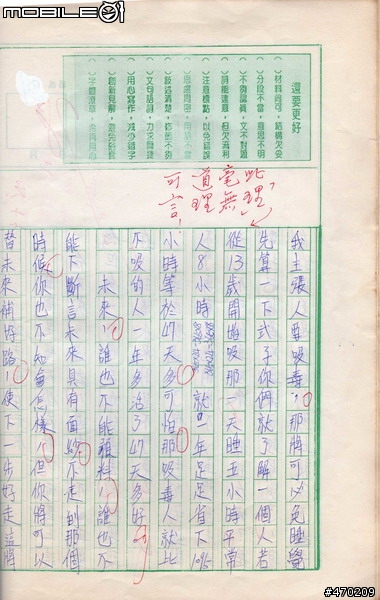 MOBILE01
還要更好
( )材料尚可，結構欠妥
( )分段不當，意思不明
( )不夠認真，文不對題
( )詞能達意，但欠流利
( )注意標點，以免錯誤
( )思慮周密，用語不當
( )文句結詞，力求簡捷
( )用心寫作，減少錯字
( )創新見解，避免抄襲
( )字體潦草，希再用心
此理，
毫無
道理
可言，
我主張人要吸毒，那將可以免睡覺
先算一下式子你們就了解一個人若
從13歲開始吸那一天睡五小時平常
人8小時
就一年足足省下1095
小時等於47天多可怕那吸毒人就比
不吸的人一年多活了47天多好
未來，誰也不能預料，誰也不
能下斷言未來具有面紗不走到那個
時候你也不知會怎樣，但你將可以
替未來補好路，使下一步好走這將
#470209